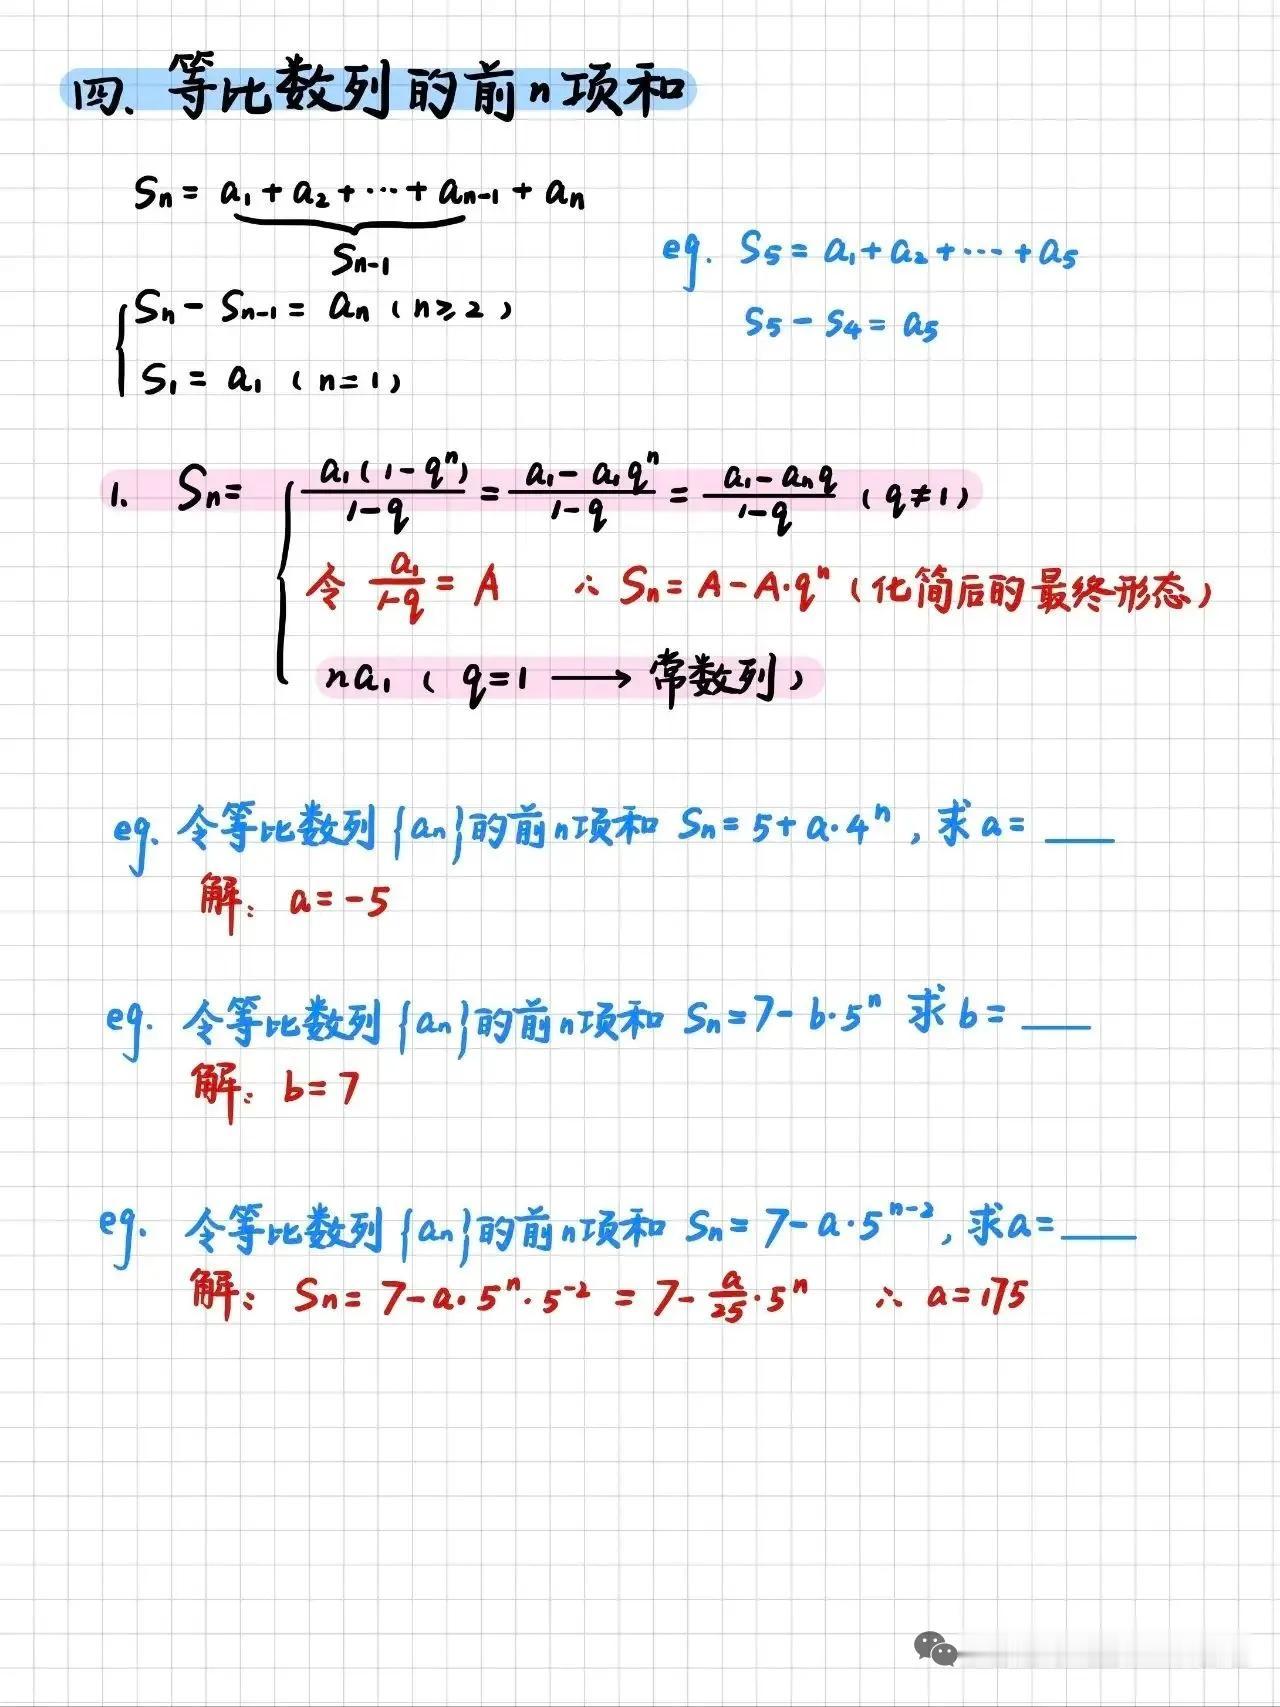 四、等比数列的前n项和
Sn = a1 + a2 + ··· + an-1 + an
Sn-1
eg. S5 = a1 + a2 + ··· + a5
Sn - Sn-1 = an (n≥2)
S5 - S4 = a5
S1 = a1 (n=1)
1. Sn = { a1(1-q^n)/(1-q) = (a1-a1q^n)/(1-q) = (a1-anq)/(1-q) (q≠1)
令 a1/(1-q) = A ∴ Sn = A - A·q^n (化简后的最终形态)
na1 (q=1 ⟶ 常数列)
eg. 令等比数列{an}的前n项和 Sn = 5+a·4^n, 求a= ___
解: a = -5
eg. 令等比数列{an}的前n项和 Sn = 7-b·5^n 求b= ___
解: b = 7
eg. 令等比数列{an}的前n项和 Sn = 7-a·5^(n-2), 求a= ___
解: Sn = 7-a·5^n·5^-2 = 7-a/25·5^n ∴ a=175